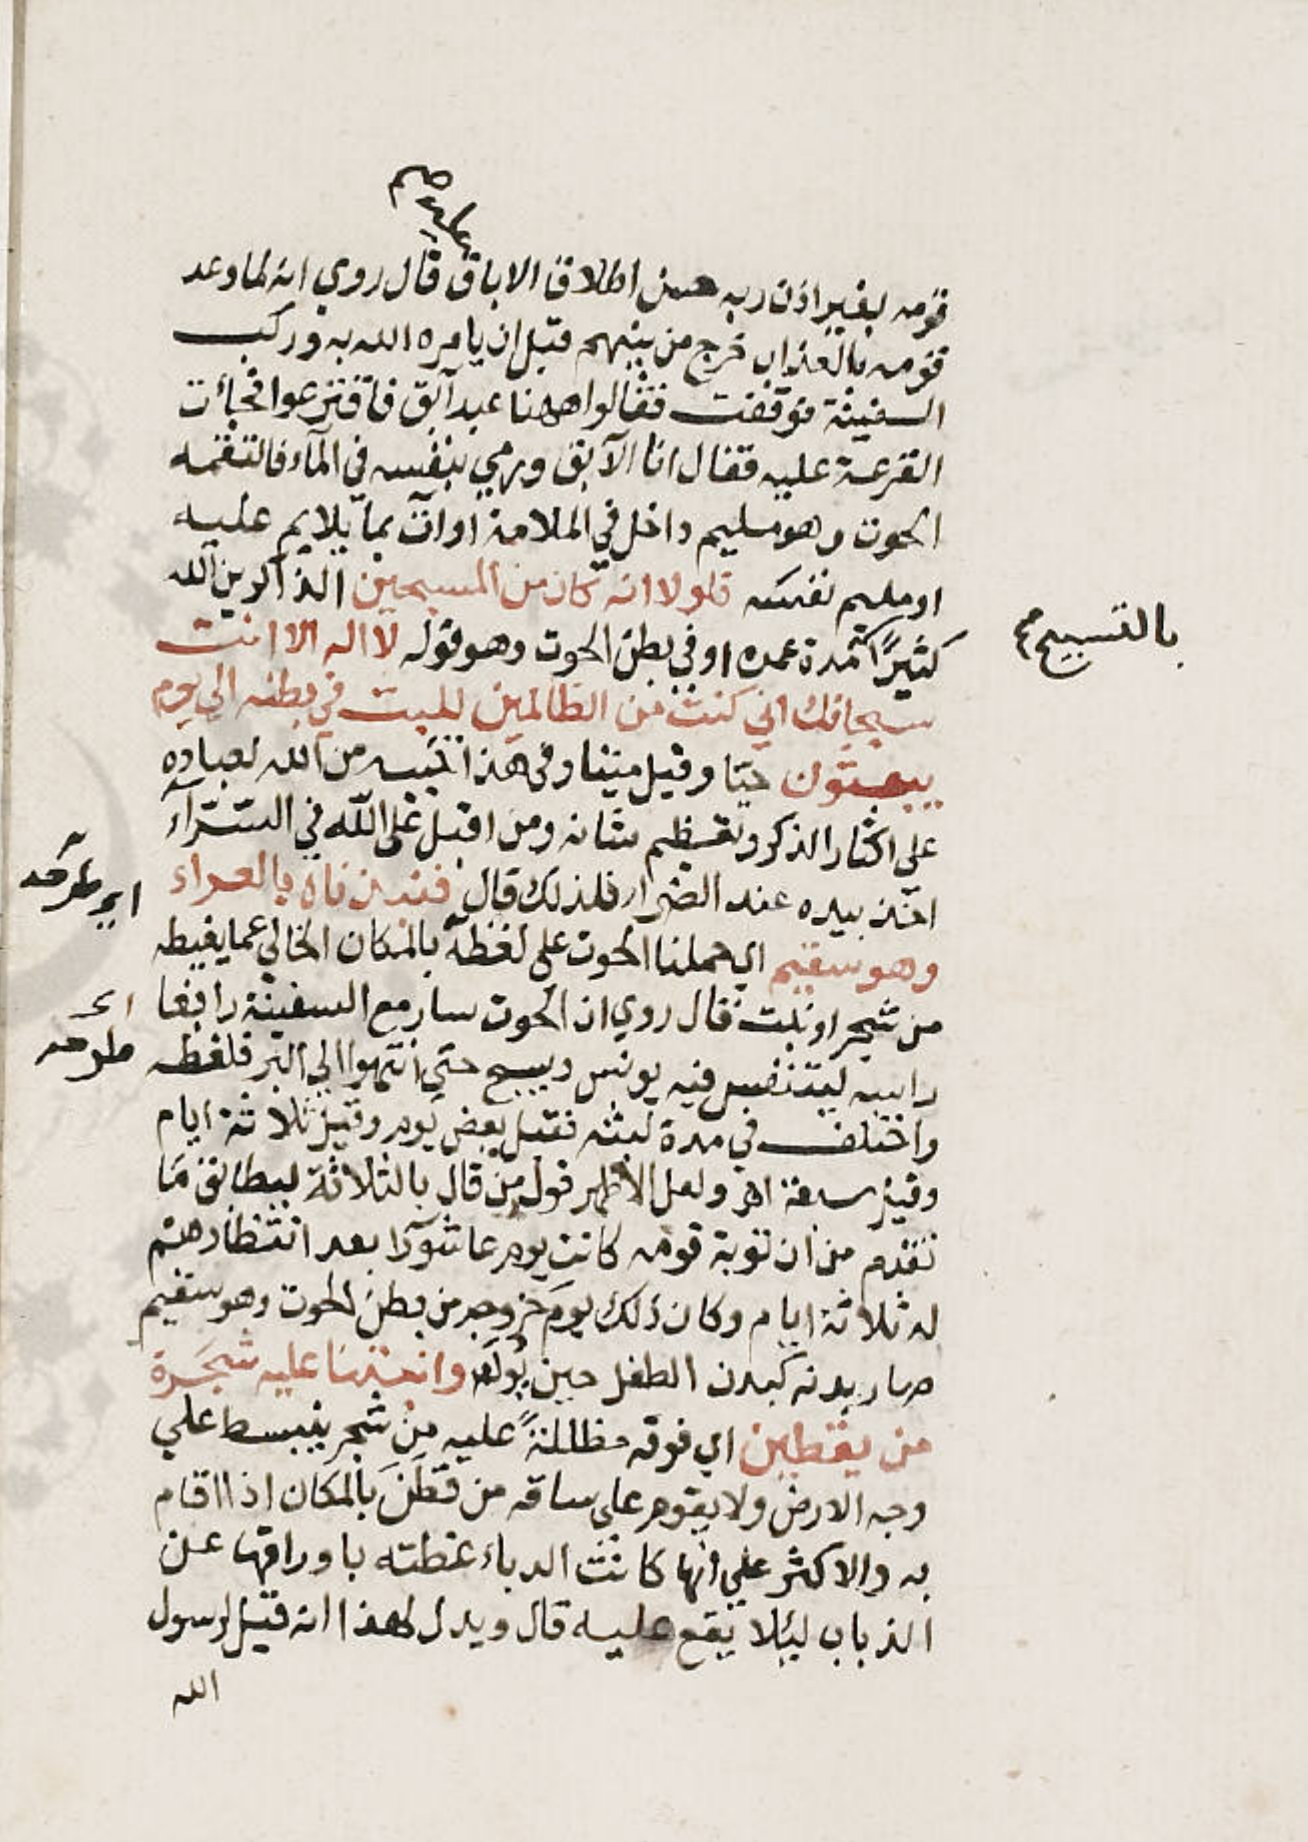 عليه صح
قومه بغير اذن ربه حسن اطلاق الاباق قال روي انه لما وعد
قومه بالعذاب خرج من بينهم قبل ان يامره الله به فركب
السفينة فوقفت فقالوا ههنا عبد آبق فاقترعوا فخرجت
القرعة عليه فقال انا الآبق ورمي بنفسه في المآء فالتقمه
الحوت وهو مليم داخل في الملامة او آت بما يلام عليه
او مليم نفسه فلولا انه كان من المسبحين الذاكرين الله
كثيرًا مدة عمره او في بطن الحوت وهو قوله لا اله الا انت
بالتسبيح صح
سبحانك اني كنت من الظالمين للبث في بطنه الي يوم
يبعثون حيا وقيل ميتا وفي هذا تنبيه من الله لعباده
على اكثار الذكر وتعظيم شانه ومن اقبل على الله في السرآء
اخذ بيده عند الضرار فلذلك قال فنبذناه بالعراء
اي طرحه
وهو سقيم اي حملنا الحوت على لفظه بالمكان الخالي عما يغطيه
من شجر او نبت فقال روي ان الحوت سار مع السفينة رافعا
راسه ليتنفس فيه يونس ويسبح حتي انتهوا الي البر فلفظه
اي طرحه
واختلف في مدة لبثه فقيل بعض يوم وقيل ثلاثة ايام
وقيل سبعة اهـ ولعل الاظهر قول من قال بالثلاثة ليطابق مَا
تقدم من ان توبة قومه كانت يوم عاشورآ بعد انتظارهم
له ثلاثة ايام وكان ذلك يوم خروجه من بطن الحوت وهو سقيم
صار بدنه كبدن الطفل حين يُولَد وانبتنا عليه شجَرة
من يقطين اي فوقه مظللةً عليه من شجر ينبسط علي
وجه الارض ولا يقوم على ساقه من قَطَنَ بالمكان اذا اقام
به والاكثر علي انها كانت الدباء غطته باوراقها عن
الذباب ليلا يقع عليه قال ويدل لهذا انه قيل لرسول
الله